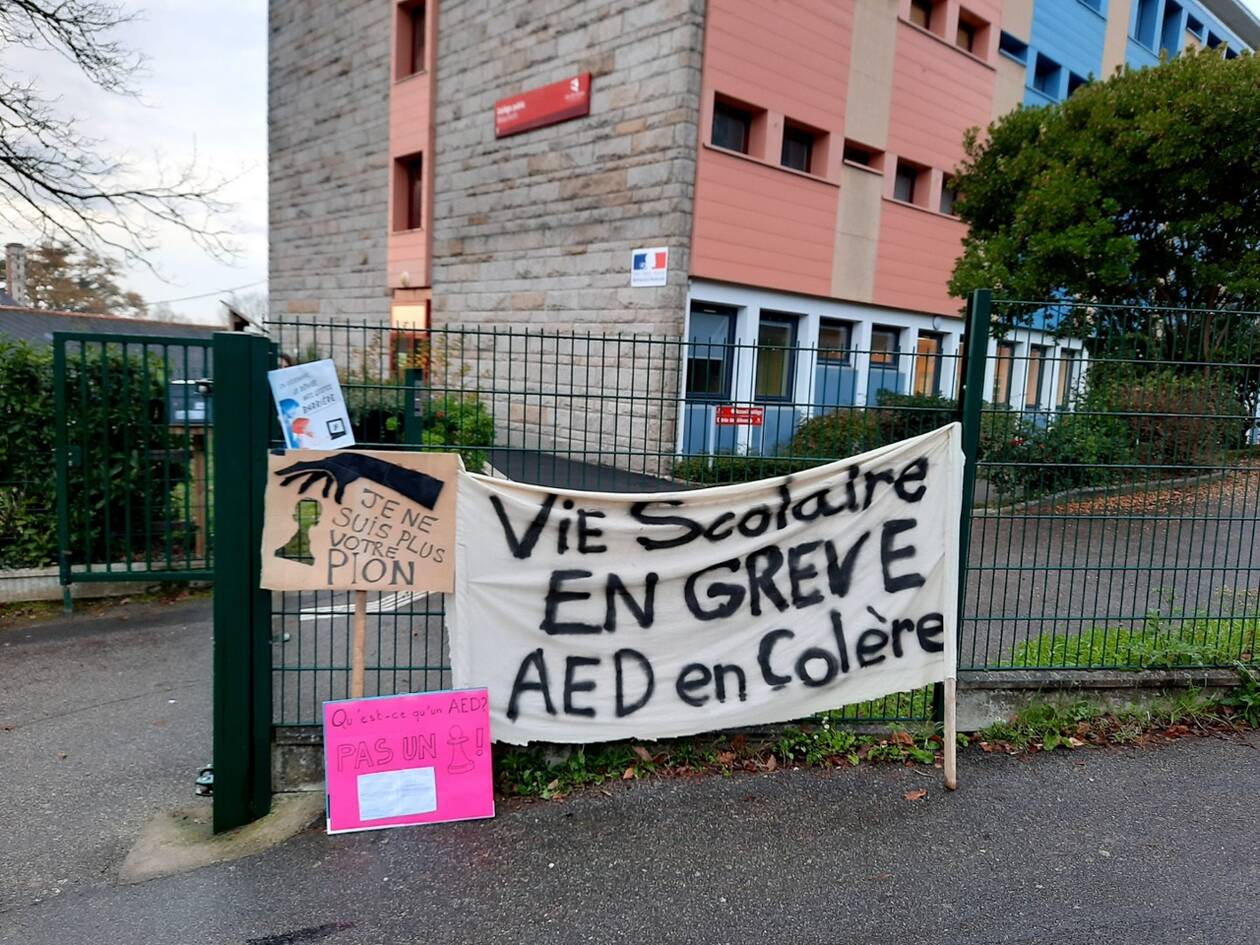 Collège public
JE NE
SUIS PLUS
VOTRE
PION
Vie Scolaire
EN GREVE
AED en Colère
Qu'est-ce qu'un AED?
PAS UN !
BARRIÈRE